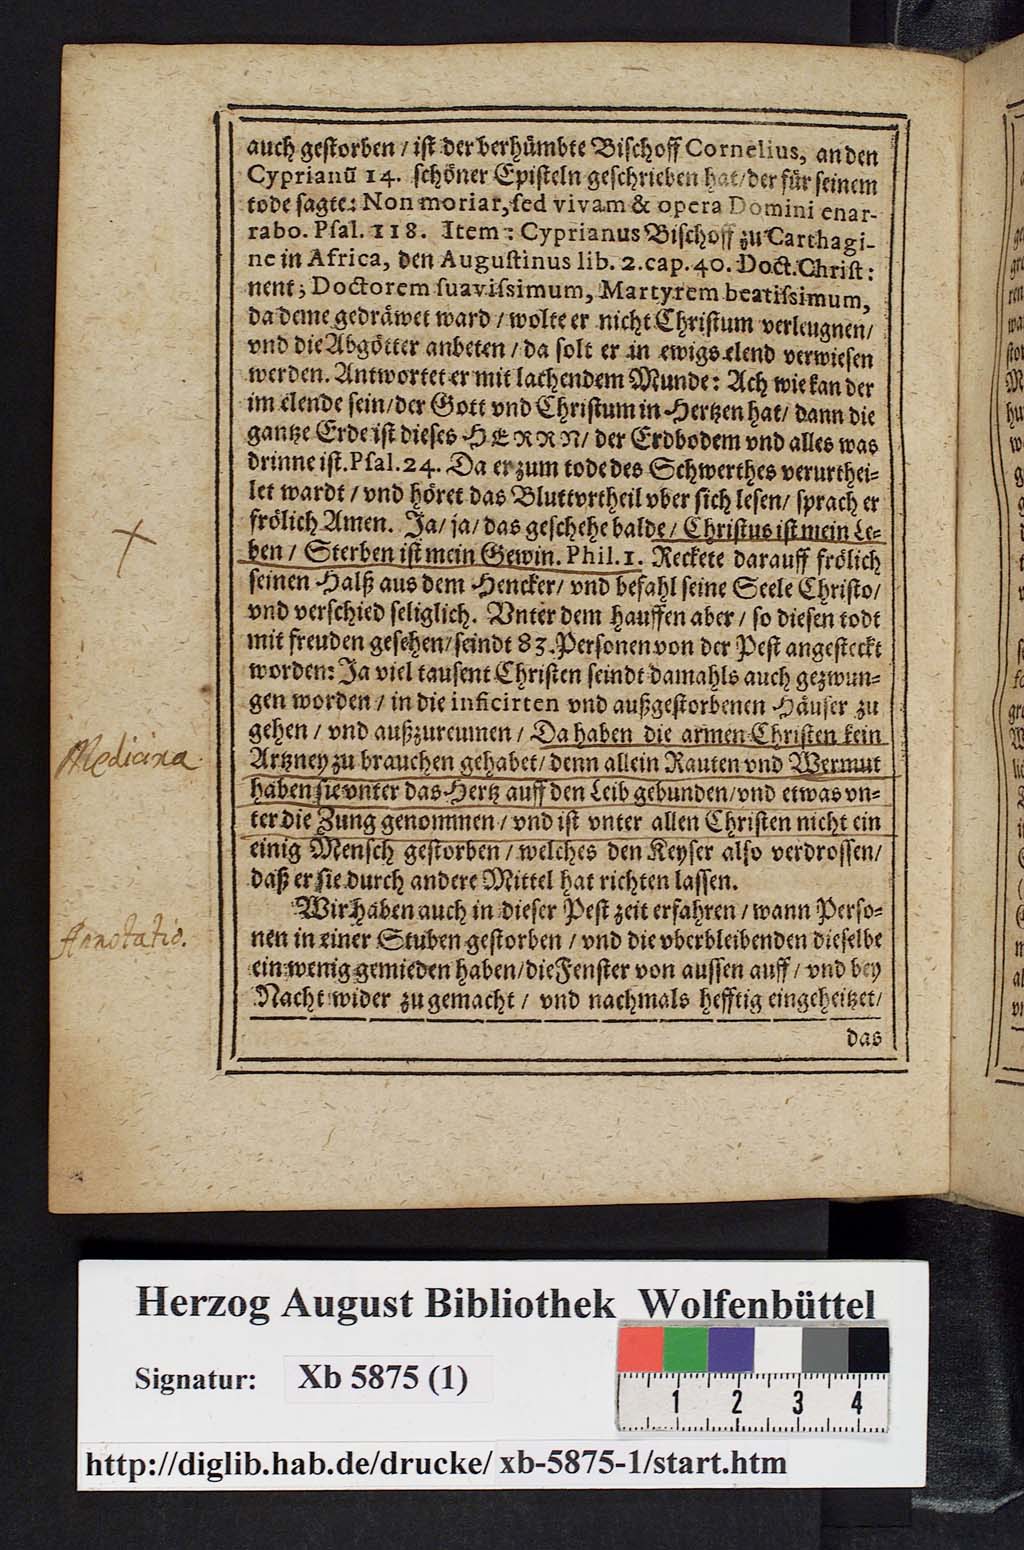 auch gestorben / ist der berhümbte Bischoff Cornelius, an den
Cyprianū 14. schöner Episteln geschrieben hat / der für seinem
tode sagte: Non moriar, sed vivam & opera Domini enar-
rabo. Psal. 118. Item: Cyprianus Bischoff zu Carthagi-
ne in Africa, den Augustinus lib. 2. cap. 40. Doct. Christ:
nent; Doctorem suavissimum, Martyrem beatissimum,
da deme gedräwet ward / wolte er nicht Christum verleugnen /
vnd die Abgötter anbeten / da solt er in ewigs elend verwiesen
werden. Antwortet er mit lachendem Munde: Ach wie kan der
im elende sein / der Gott vnd Christum in Hertzen hat / dann die
gantze Erde ist dieses HERRN / der Erdbodem vnd alles was
drinne ist. Psal. 24. Da er zum tode des Schwerthes verurthei-
let wardt / vnd höret das Bluttvrtheil vber sich lesen / sprach er
frölich Amen. Ja / ja / das geschehe balde / Christus ist mein Le-
ben / Sterben ist mein Gewin. Phil. 1. Reckete darauff frölich
seinen Halß aus dem Hencker / vnd befahl seine Seele Christo /
vnd verschied seliglich. Vnter dem hauffen aber / so diesen todt
mit freuden gesehen / seindt 83. Personen von der Pest angesteckt
worden: Ja viel tausent Christen seindt damahls auch gezwun-
gen worden / in die inficirten vnd außgestorbenen Häuser zu
gehen / vnd außzureumen / Da haben die armen Christen kein
Medicina
Artzney zu brauchen gehabet / denn allein Rauten vnd Wermut
haben sie vnter das Hertz auff den Leib gebunden / vnd etwas vn-
ter die Zung genommen / vnd ist vnter allen Christen nicht ein
einig Mensch gestorben / welches den Keyser also verdrossen /
daß er sie durch andere Mittel hat richten lassen.
Wir haben auch in dieser Pest zeit erfahren / wann Perso-
Annotatio.
nen in einer Stuben gestorben / vnd die vberbleibenden dieselbe
ein wenig gemieden haben / die Fenster von aussen auff / vnd bey
Nacht wider zu gemacht / vnd nachmals hefftig eingeheitzet /
das
Herzog August Bibliothek Wolfenbüttel
Signatur: Xb 5875 (1)
1 2 3 4
http://diglib.hab.de/drucke/ xb-5875-1/start.htm